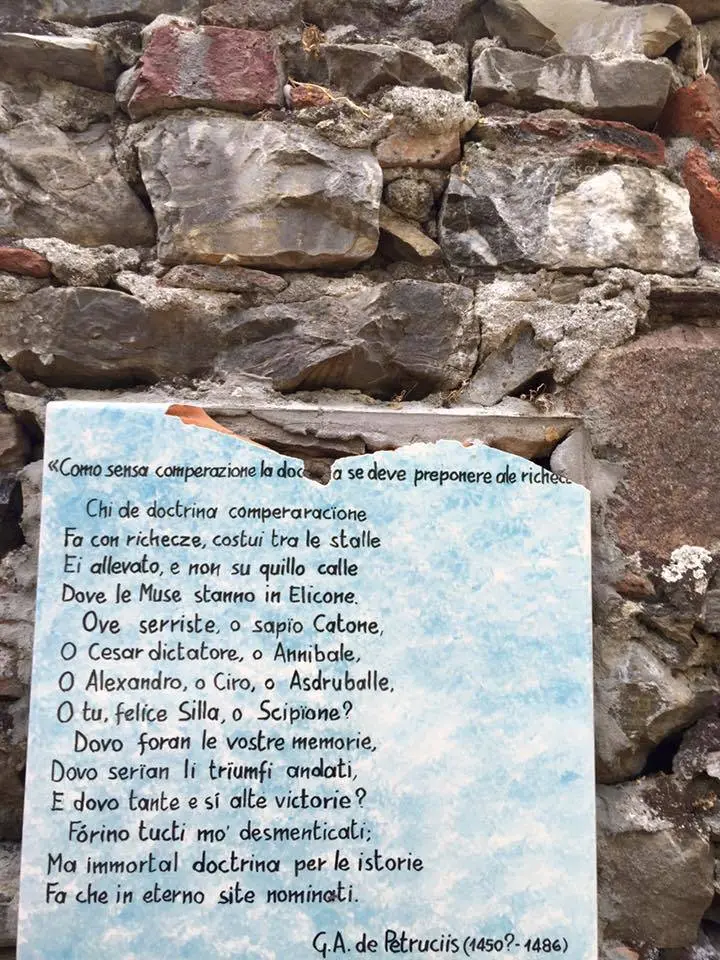 «Como sensa comperazione la doc a se deve preponere ale richec
Chi de doctrina comperaracïone
Fa con richecze, costui tra le stalle
Ei allevato, e non su quillo calle
Dove le Muse stanno in Elicone.
Ove serriste, o sapïo Catone,
O Cesar dictatore, o Annibale,
O Alexandro, o Ciro, o Asdruballe,
O tu, felice Silla, o Scipïone?
Dovo foran le vostre memorie,
Dovo serïan li trïumfi andati,
E dovo tante e sí alte victorie?
Fórino tucti mo' desmenticati;
Ma immortal doctrina per le istorie
Fa che in eterno site nominati.
G.A. de Petruciis (1450?-1486)